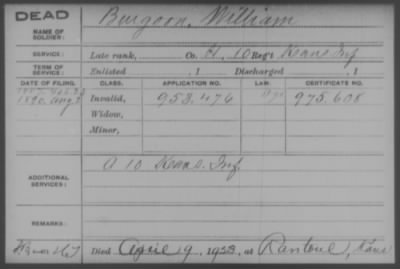 DEAD
NAME OF SOLDIER: Burgoon, William
SERVICE: Late rank, Co. A, 10 Reg't Kans Inf
TERM OF SERVICE: Enlisted , 1 Discharged , 1
DATE OF FILING. CLASS. APPLICATION NO. LAW. CERTIFICATE NO.
1890 Aug Invalid, 953.476 975.608
Widow,
Minor,
ADDITIONAL SERVICES: A 10 Kans. Inf.
REMARKS:
Died April 9, 1923, at Rantoul, Kans